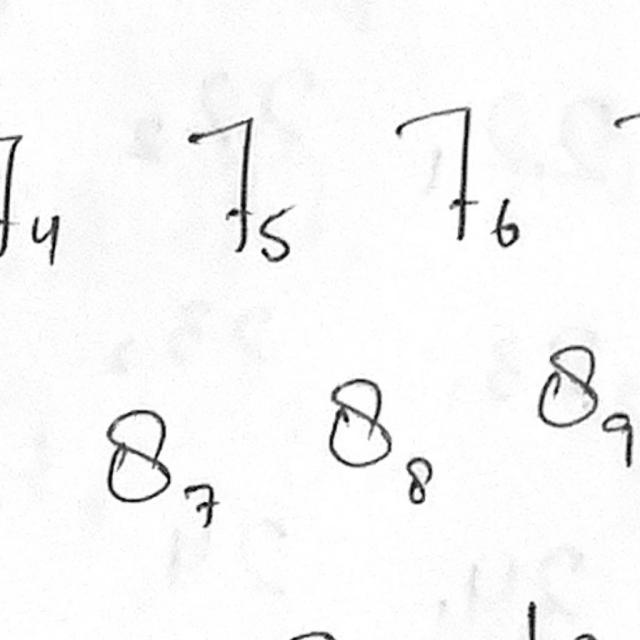 7₄ 7₅ 7₆
8₇ 8₈ 8₉